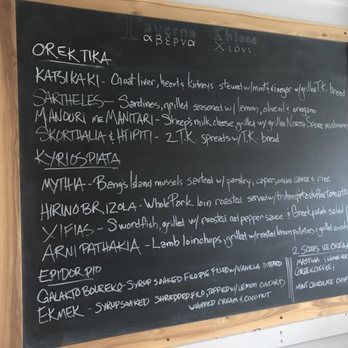 Taverna Khione
αβέρνα Χιόνι
OREKTIKA
KATSIKAKI - Goat liver, heart & kidneys stewed w/ mint & vinegar w/ grilled T.K. bread
SARTHELES - Sardines, grilled seasoned w/ lemon, olive oil & oregano
MANOURI me MANITARI - Sheep's milk cheese, grilled w/ grilled North Spore mushrooms
SKORTHALIA & HTIPITI - 2 T.K. spreads w/ T.K. bread
KYRIOSPIATA
MYTHIA - Bangs Island mussels sauteed w/ parsley, caper, onion sauce & rice
HIRINO BRIZOLA - Whole Pork loin roasted served w/
XIFIAS - Swordfish, grilled w/ roasted red pepper sauce & Greek potato salad
ARNI PATHAKIA - Lamb loin chops, grilled w/ roasted lemon potatoes,
EPIDORPIO
GALAKTOBOUREKO - SYRUP SOAKED FILO PIE FILLED W/ VANILLA CUSTARD
EKMEK - SYRUP SOAKED SHREDDED FILO, TOPPED W/ LEMON CUSTARD/
WHIPPED CREAM & COCONUT
2 SCOOPS ICE CREAM
MASTIHA
MINT CHOCOLATE CHIP